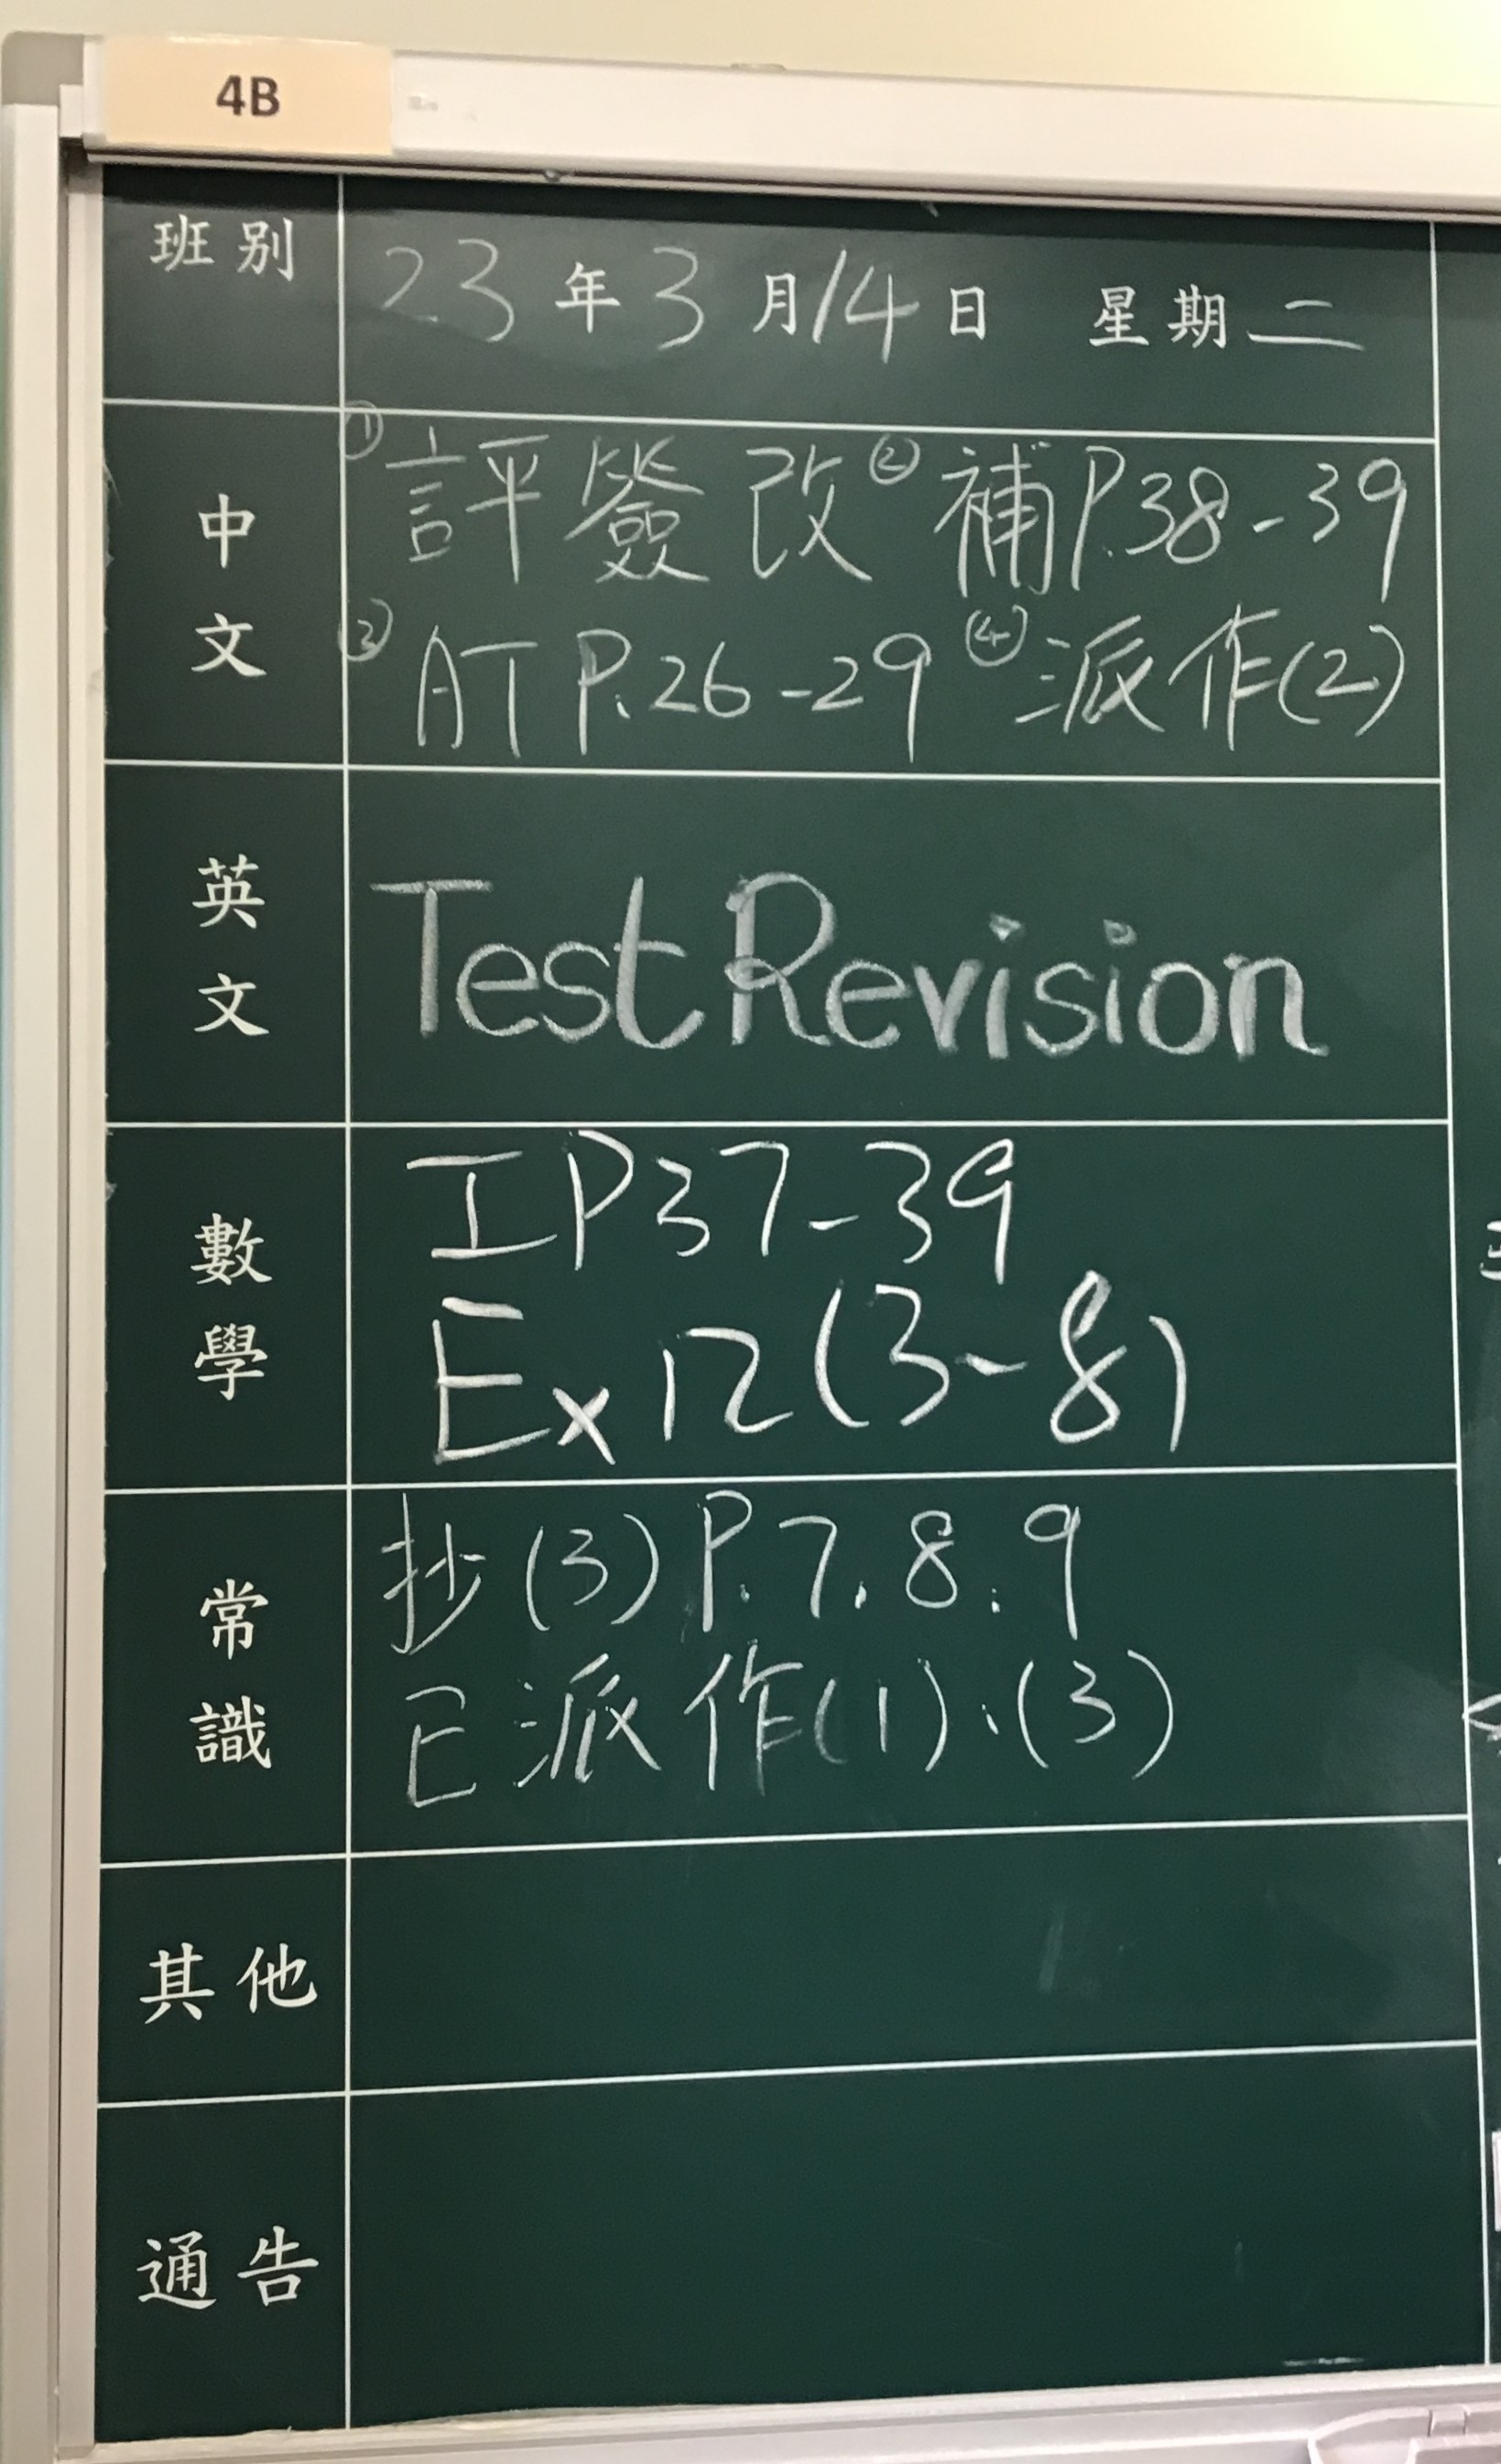 4B
班別 23年3月14日 星期二
中文 ①評簽改 ②補P.38-39
③AT P.26-29 ④派作(2)
英文 Test Revision
數學 IP37-39
Ex12(3-8)
常識 抄(3)P.7.8.9
已派作(1).(3)
其他
通告